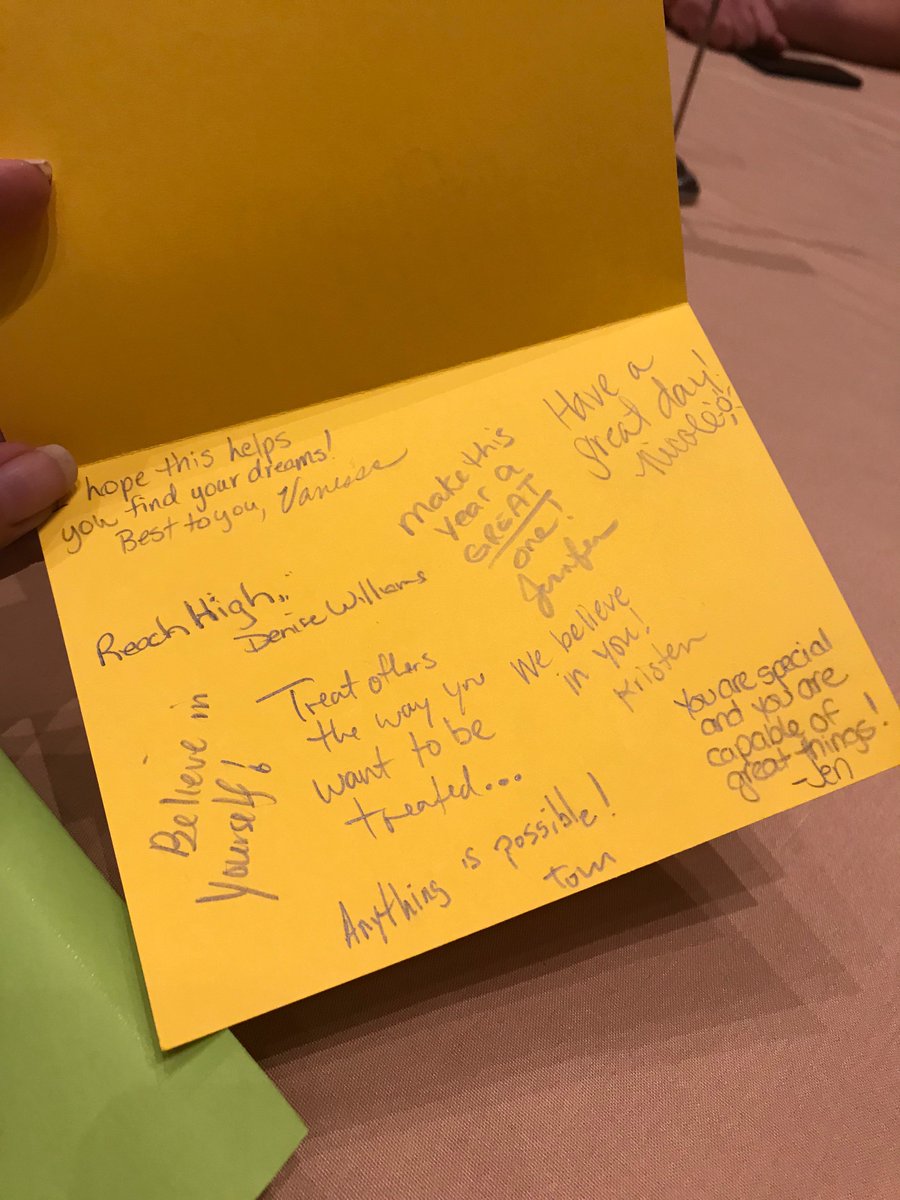 hope this helps
you find your dreams!
Best to you, Vanessa
Make this
year a
GREAT
one!
Jennifer
Have a
great day!
Nicole
Reach High...
Denise Williams
We believe
in you!
Kristen
You are special
and you are
capable of
great things!
-Jen
Believe in
yourself!
Treat others
the way you
want to be
treated...
Anything is possible!
Tom